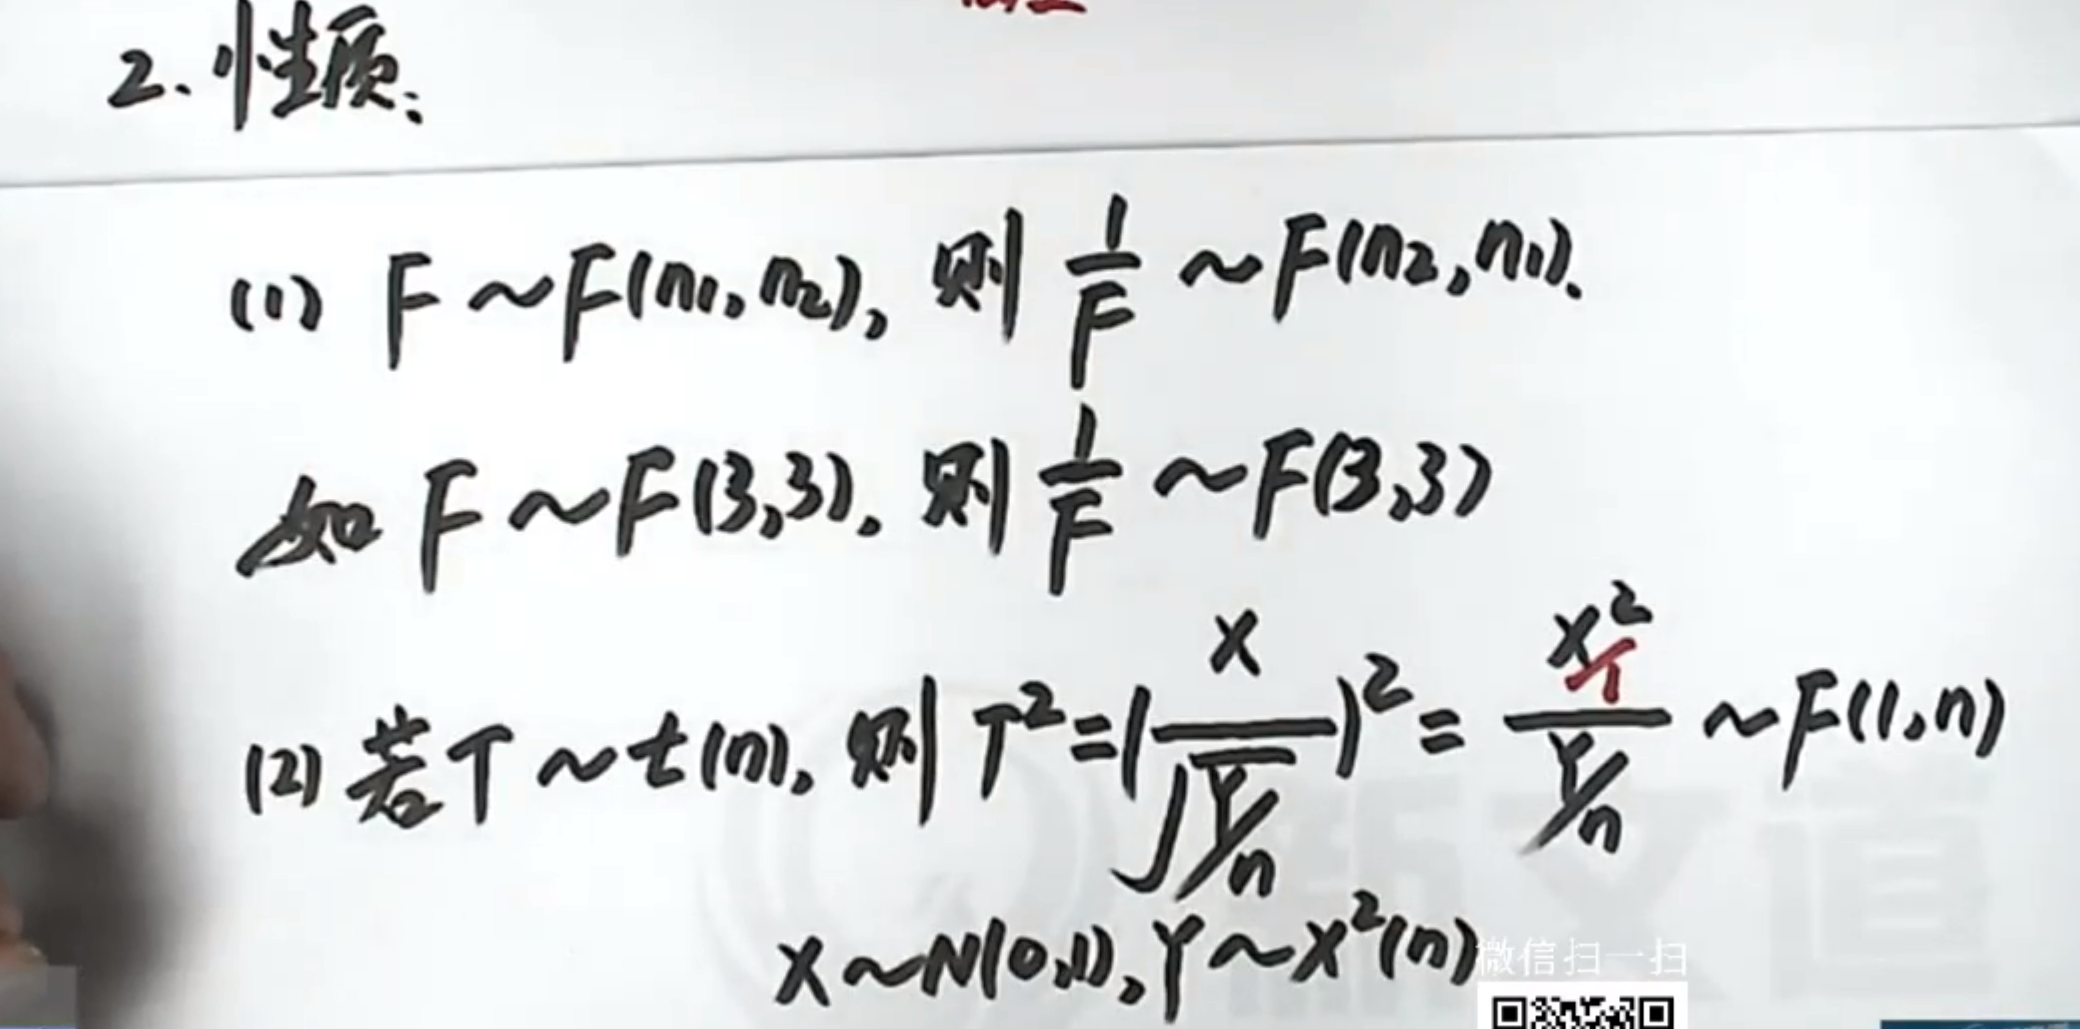 2. 性质:
(1) F ~ F(n₁, n₂), 则 1/F ~ F(n₂, n₁).
如 F ~ F(3,3), 则 1/F ~ F(3,3)
(2) 若 T ~ t(n), 则 T² = (X/√(Y/n))² = (X²/1)/(Y/n) ~ F(1, n)
X ~ N(0,1), Y ~ χ²(n)
微信扫一扫
新文道